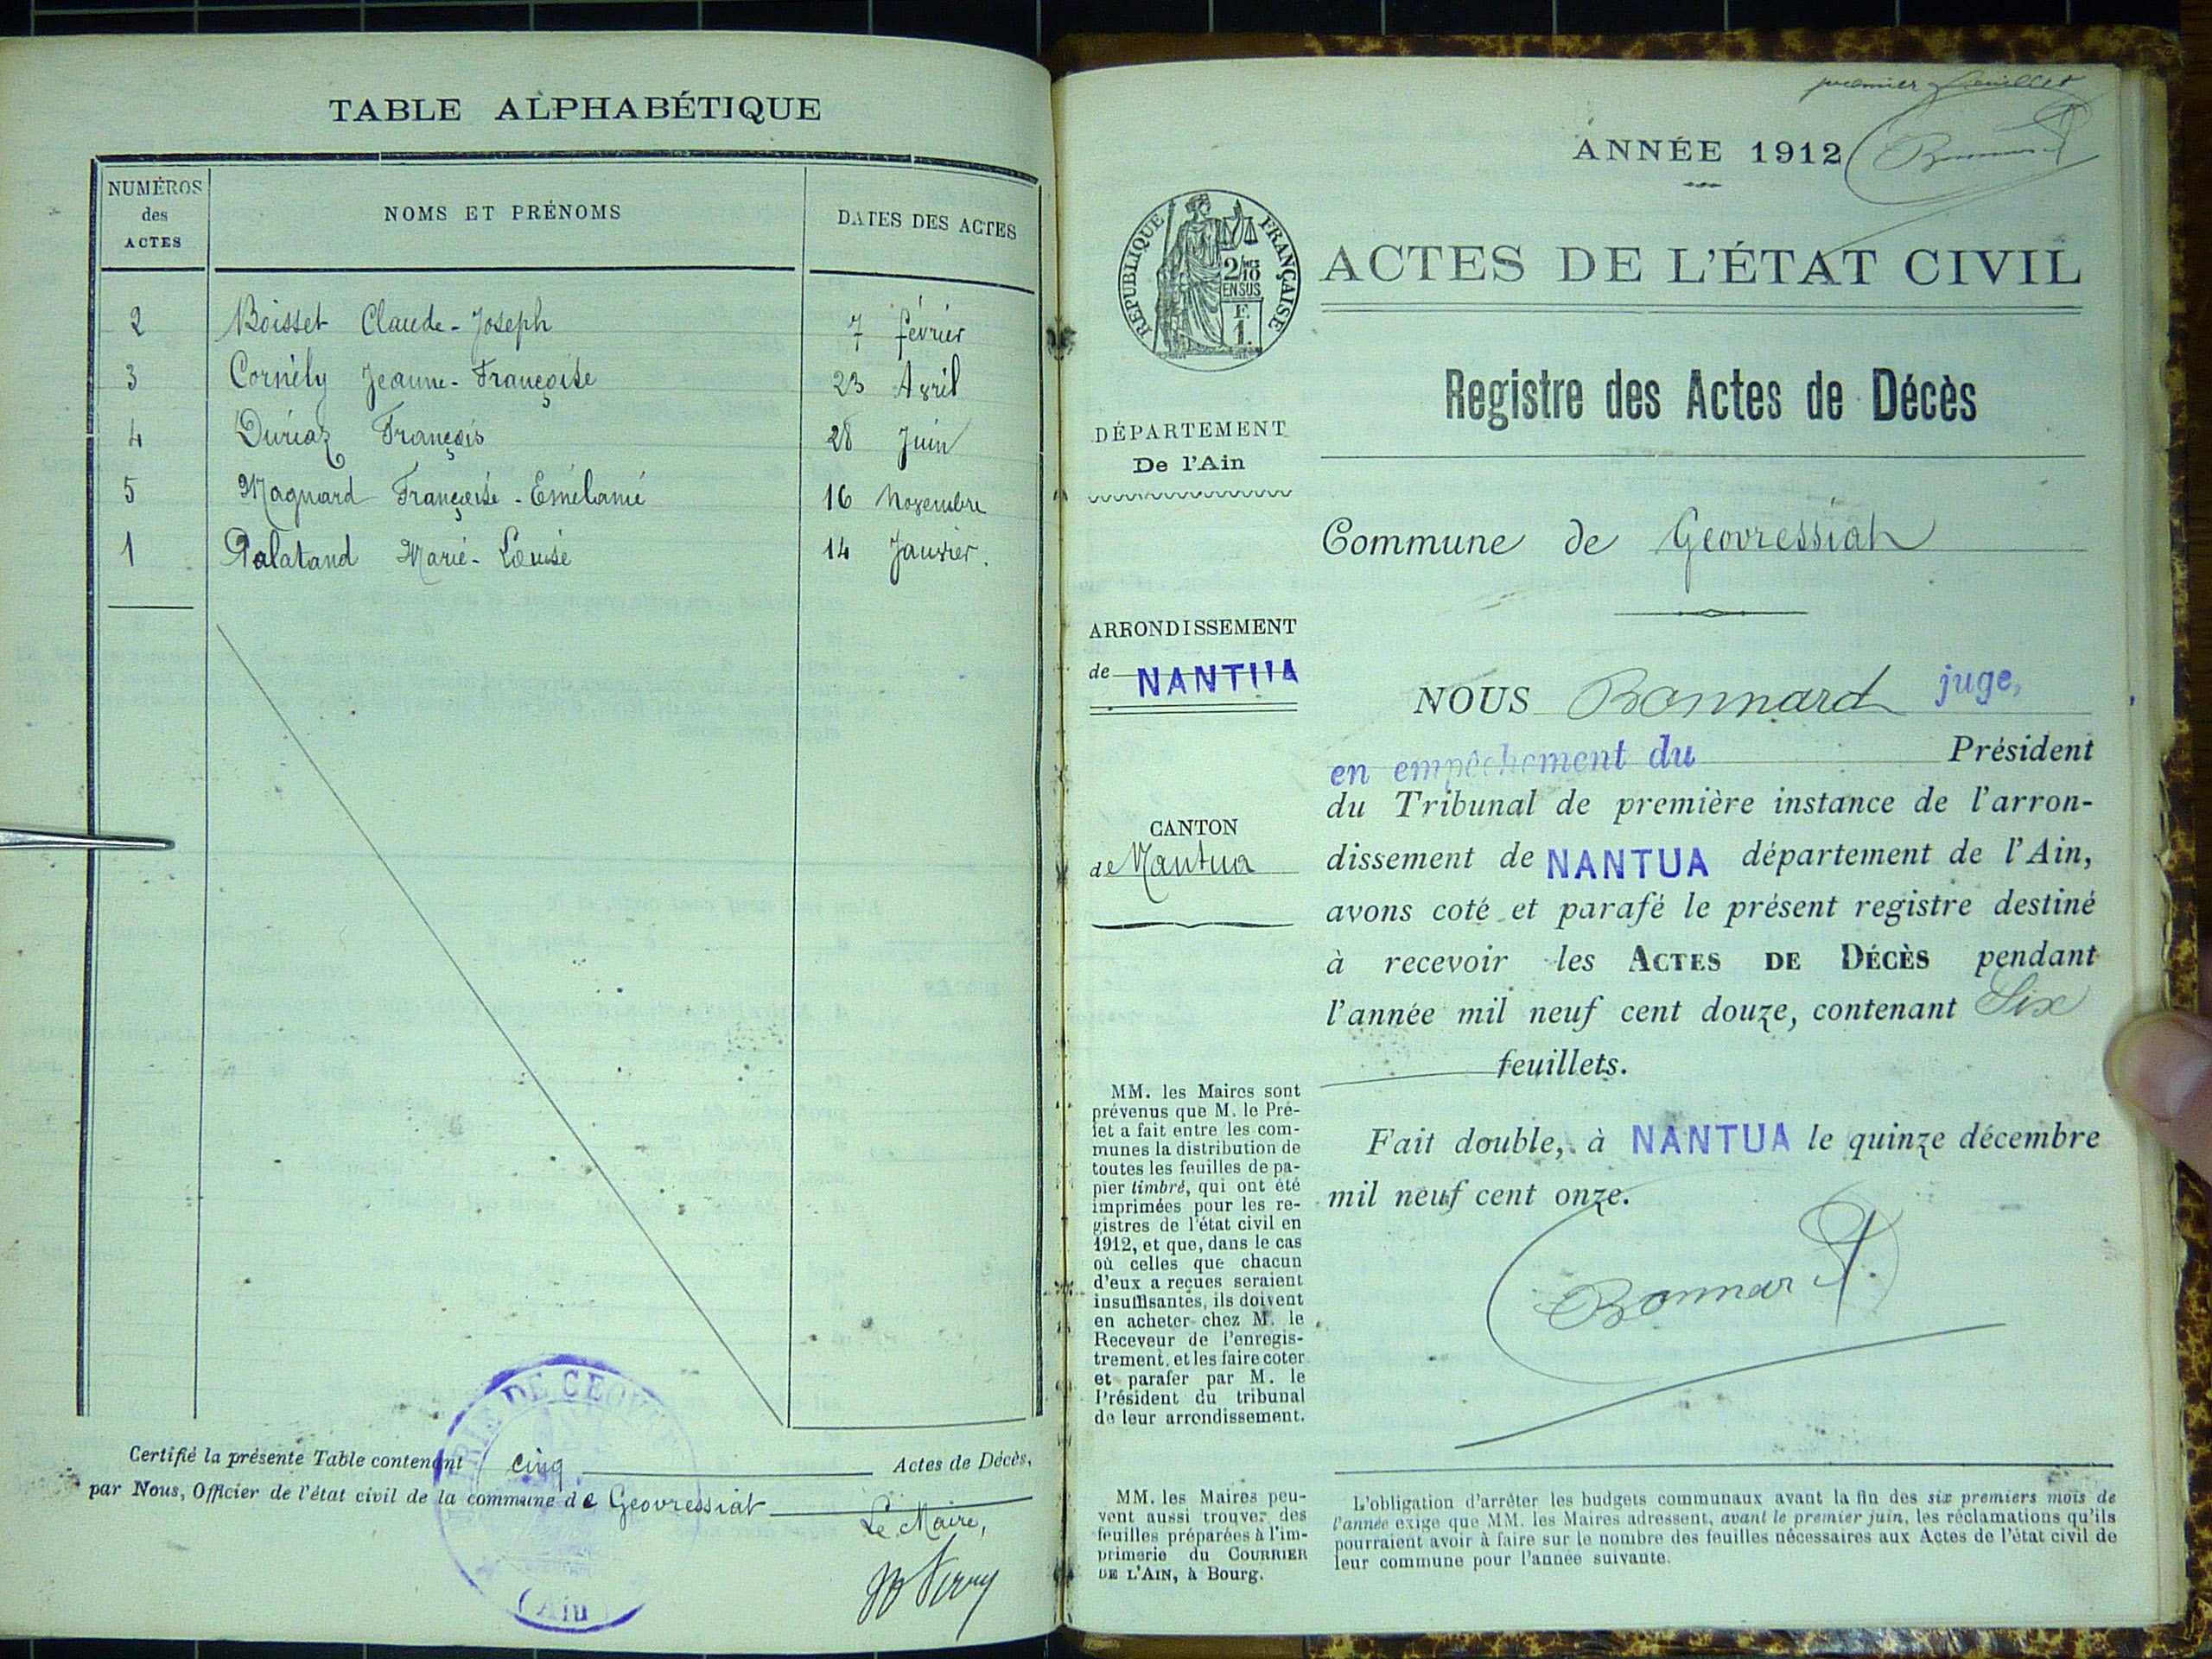 TABLE ALPHABÉTIQUE
NUMÉROS des ACTES
NOMS ET PRÉNOMS
DATES DES ACTES
2 Boisset Claude-Joseph 7 février
3 Cornély Jeanne-Françoise 23 Avril
4 Duriaz François 28 Juin
5 Magnard Françoise-Emélanie 16 Novembre
1 Palatand Marie-Louise 14 Janvier.
Certifié la présente Table contenant cinq Actes de Décès,
par Nous, Officier de l'état civil de la commune de Geovressiat
Le Maire,
MAIRIE DE GEOV
(Ain)
premier feuillet
ANNÉE 1912
RÉPUBLIQUE FRANÇAISE
2/10 EN SUS
F. 1.
ACTES DE L'ÉTAT CIVIL
Registre des Actes de Décès
DÉPARTEMENT
De l'Ain
Commune de Geovressiat
ARRONDISSEMENT
de NANTUA
CANTON
de Nantua
NOUS Bonnard juge,
en empêchement du Président
du Tribunal de première instance de l'arron-
dissement de NANTUA département de l'Ain,
avons coté et parafé le présent registre destiné
à recevoir les ACTES DE DÉCÈS pendant
l'année mil neuf cent douze, contenant Six
feuillets.
Fait double, à NANTUA le quinze décembre
mil neuf cent onze.
Bonnard
MM. les Maires sont
prévenus que M. le Pré-
fet a fait entre les com-
munes la distribution de
toutes les feuilles de pa-
pier timbré, qui ont été
imprimées pour les re-
gistres de l'état civil en
1912, et que, dans le cas
où celles que chacun
d'eux a reçues seraient
insuffisantes, ils doivent
en acheter chez M. le
Receveur de l'enregis-
trement, et les faire coter
et parafer par M. le
Président du tribunal
de leur arrondissement.
MM. les Maires peu-
vent aussi trouver des
feuilles préparées à l'im-
primerie du COURRIER
DE L'AIN, à Bourg.
L'obligation d'arrêter les budgets communaux avant la fin des six premiers mois de
l'année exige que MM. les Maires adressent, avant le premier juin, les réclamations qu'ils
pourraient avoir à faire sur le nombre des feuilles nécessaires aux Actes de l'état civil de
leur commune pour l'année suivante.